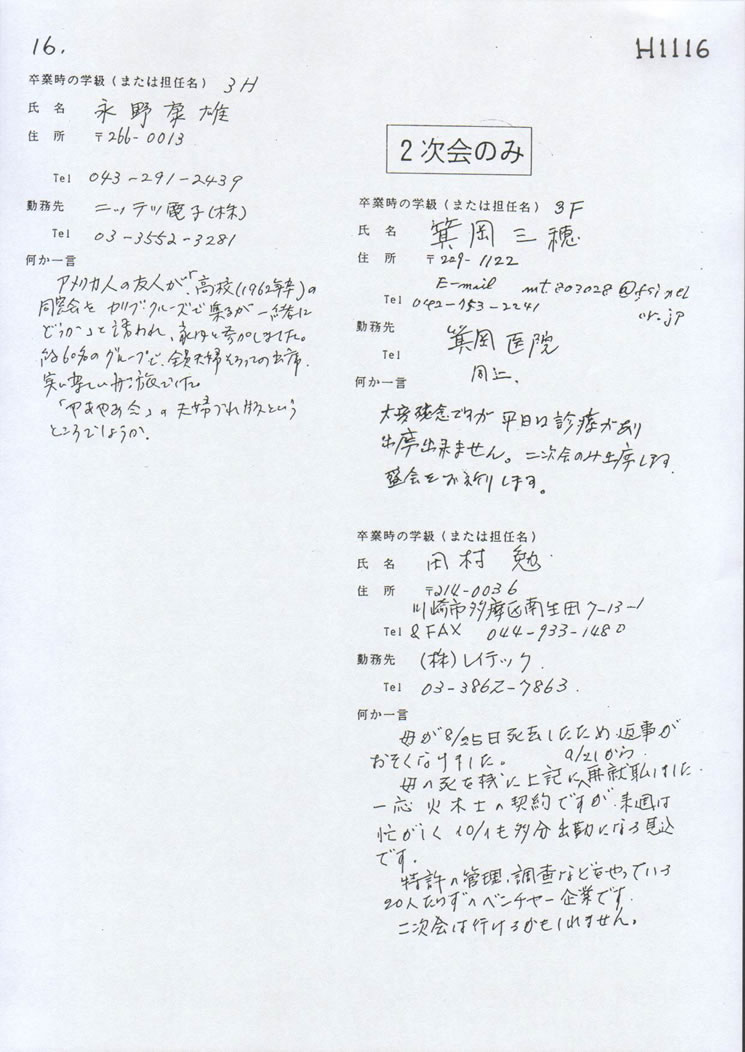 16.
H1116
卒業時の学級(または担任名) 3H
氏 名 永野 雄
住 所 〒266-0013
Tel 043-291-2439
勤務先 ニッテツ電子(株)
Tel 03-3552-3281
何か一言
アメリカ人の友人が、「高校(1962年卒)の
同窓会を カリブクルーズで乗るが 一緒に
どうか」と誘われ、家内と参加しました。
約60名のグループで、全員夫婦そろっての出席、
実に楽しい 旅でした。
「やあやあ会」の 夫婦づれ 版という
ところでしょうか。
2次会のみ
卒業時の学級(または担任名) 3F
氏 名 箕岡 三穂
住 所 〒229-1122
E-mail mt803028@fsinet
or.jp
Tel 042-753-2241
勤務先 箕岡医院
Tel 同上.
何か一言
大変残念ですが 平日は診療があり
出席出来ません。二次会のみ出席します.
盛会をお祈りします。
卒業時の学級(または担任名)
氏 名 田村 勉
住 所 〒214-0036
川崎市多摩区南生田7-13-1
Tel &FAX 044-933-1480
勤務先 (株)レイテック.
Tel 03-3862-7863.
何か一言
母が8/25日死去したため 返事が
おそくなりました。 9/21から
母の死を機に上記に再就職しました.
一応 火木土の契約ですが、来週は
忙がしく 10/1も多分出勤になる見込
です.
特許の管理、調査などをやっている
20人たらずのベンチャー企業です.
二次会は行けるかもしれません。